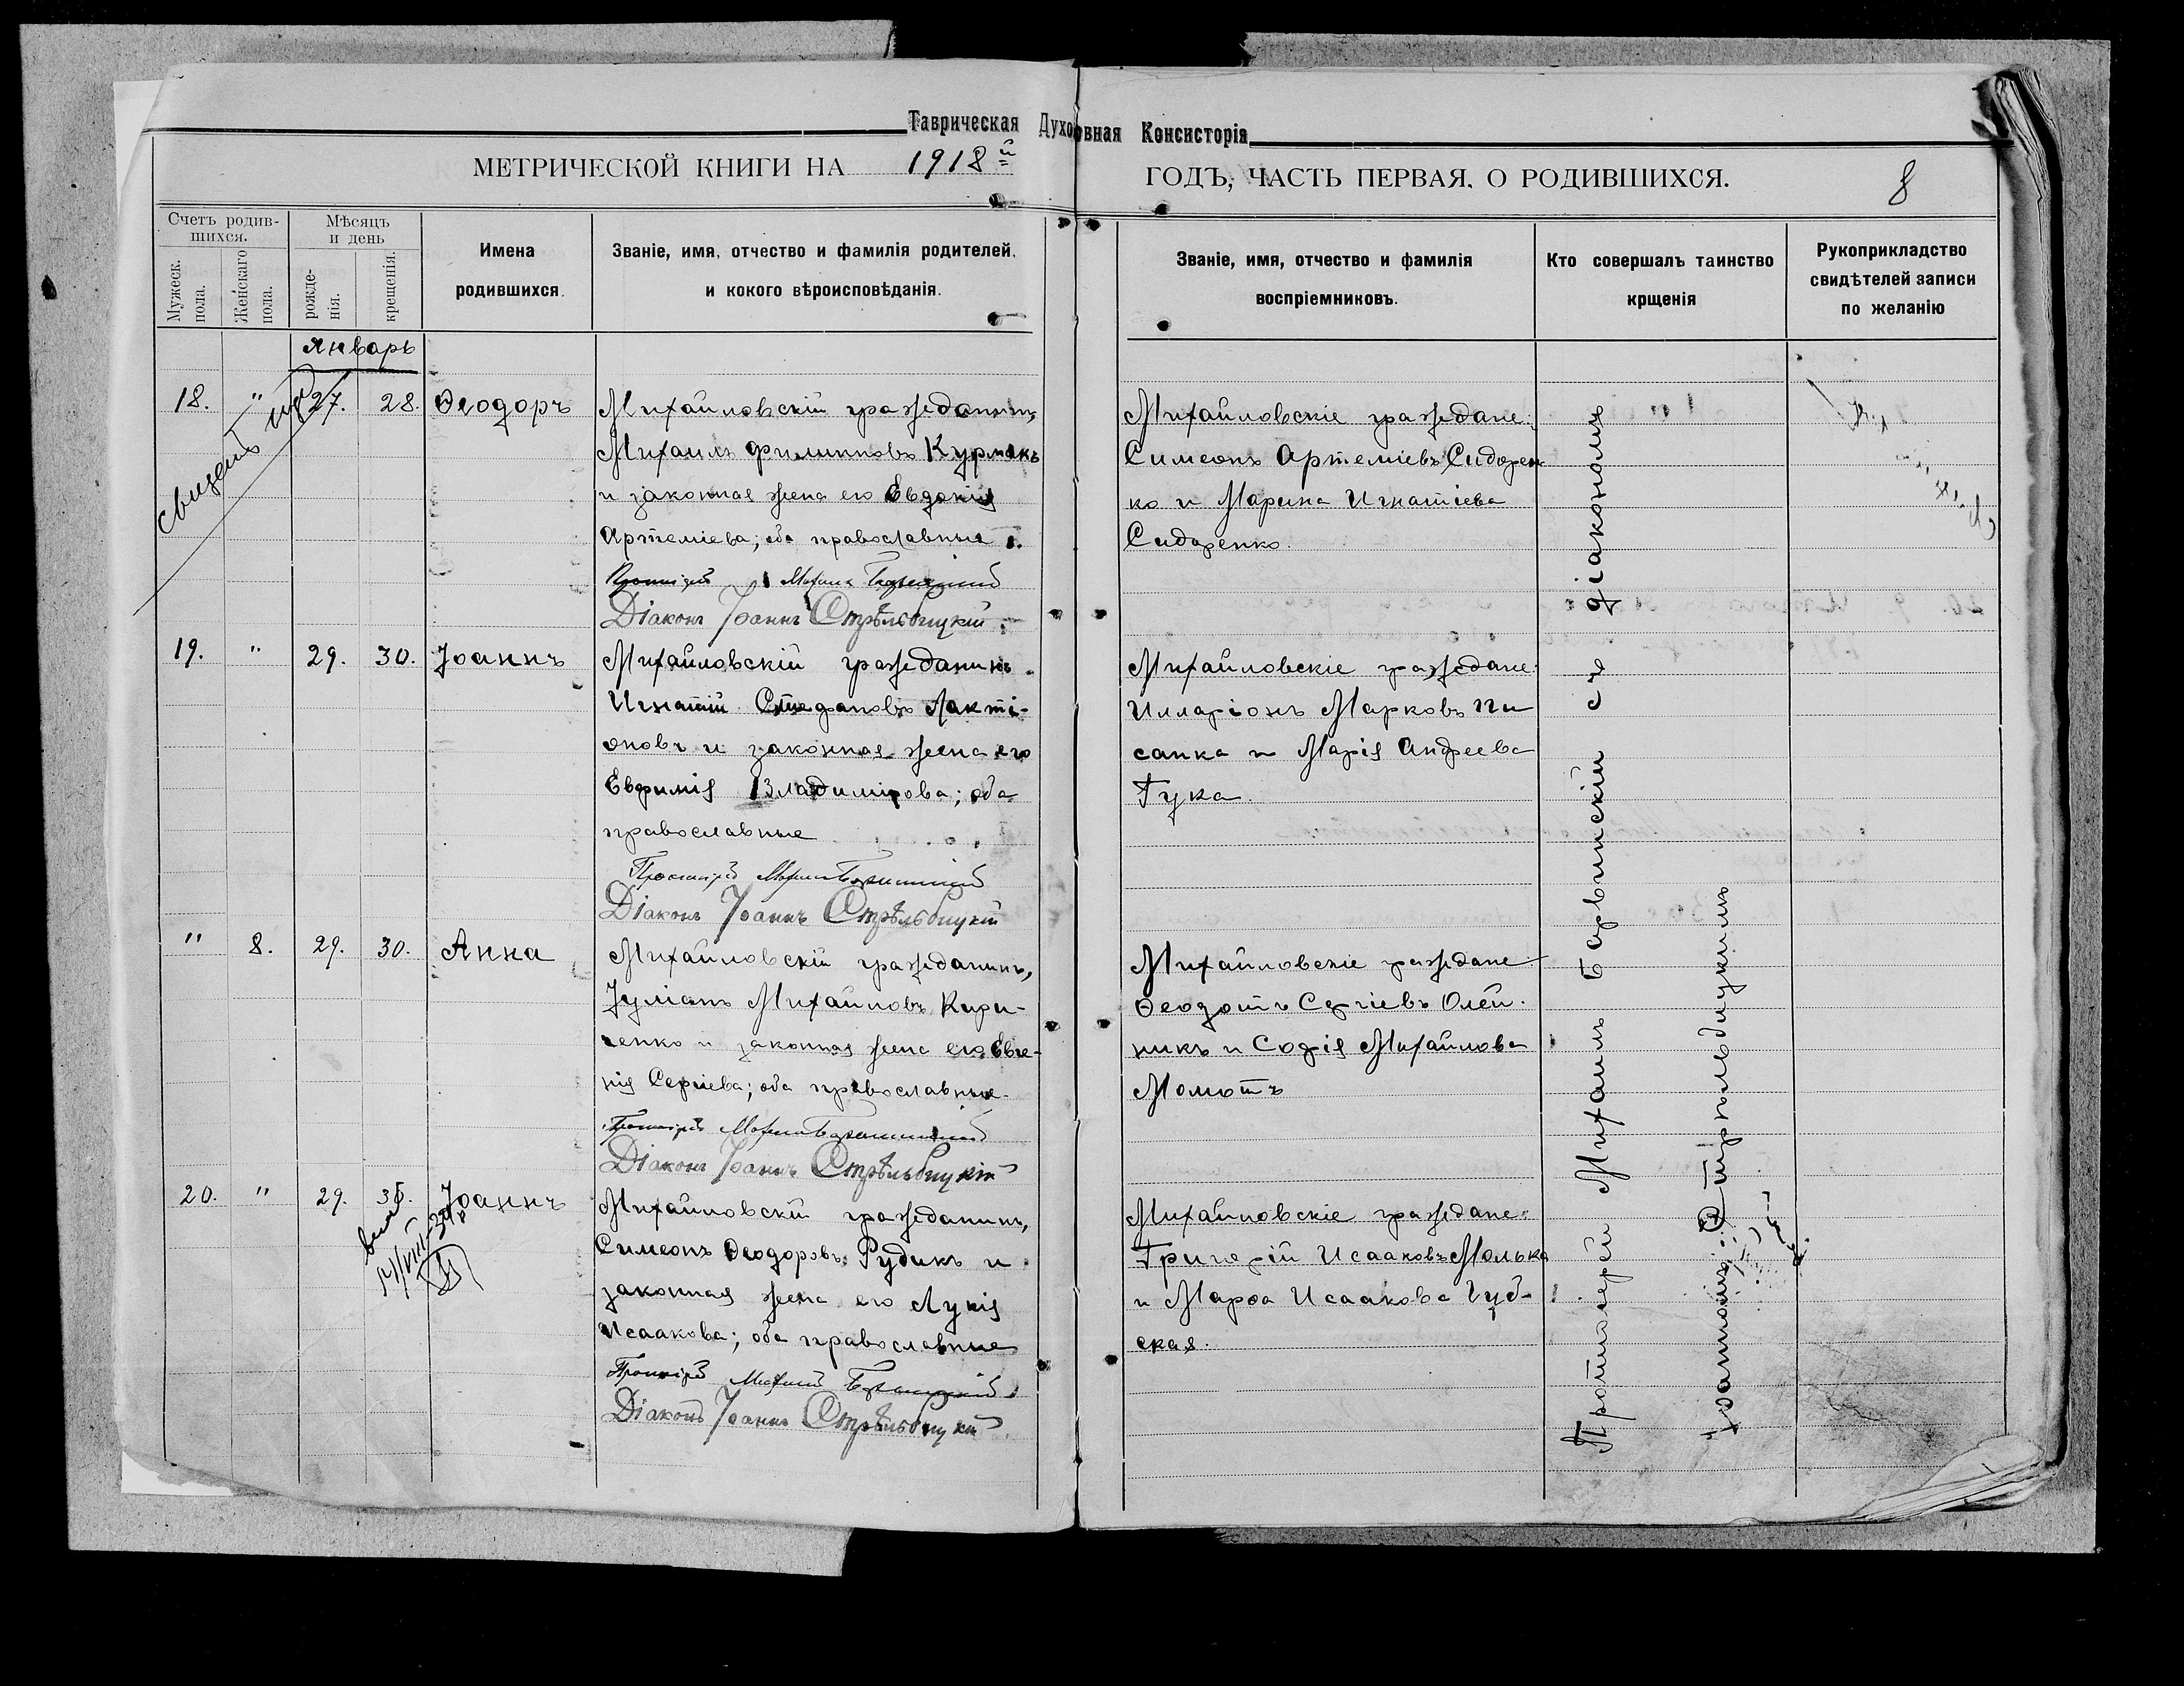 Таврическая Духовная Консисторія
МЕТРИЧЕСКОЙ КНИГИ НА 1918й
ГОДЪ, ЧАСТЬ ПЕРВАЯ. О РОДИВШИХСЯ.
8
Счетъ родив-
шихся.
Мужеск.
пола.
Женскаго
пола.
Мѣсяцъ
и день
рожде-
нія.
крещенія.
Имена
родившихся.
Званіе, имя, отчество и фамилія родителей.
и кокого вѣроисповѣданія.
Званіе, имя, отчество и фамилія
воспріемниковъ.
Кто совершалъ таинство
крщенія
Рукоприкладство
свидѣтелей записи
по желанію
Январь
18. " 27. 28. Ѳеодоръ
Михайловскій гражданинъ,
Михаилъ Филипповъ Курмакъ
и законная жена его Евдокія
Артеміева; оба православные.
Діаконъ Іоаннъ Стрѣльбицкій
Михайловскіе граждане:
Симеонъ Артеміевъ Сидорен-
ко и Марина Игнатіева
Сидоренко.
19. " 29. 30. Іоаннъ
Михайловскій гражданинъ
Игнатій Стефановъ Лакті-
оновъ и законная жена его
Евфимія Владимірова; оба
православные
Діаконъ Іоаннъ Стрѣльбицкій
Михайловскіе граждане:
Илларіонъ Марковъ Пи
санка и Марія Андреева
Гука.
" 8. 29. 30. Анна
Михайловскій гражданинъ,
Іуліанъ Михайловъ Кири-
ченко и законная жена его Евге-
нія Сергіева; оба православные.
Діаконъ Іоаннъ Стрѣльбицкій
Михайловскіе граждане
Ѳеодотъ Сергіевъ Олей-
никъ и Софія Михайлова
Момотъ
20. " 29. Іоаннъ
Михайловскій гражданинъ,
Симеонъ Ѳеодоровъ Рудикъ и
законная жена его Лукія
Исаакова; оба православные
Діаконъ Іоаннъ Стрѣльбицкій
Михайловскіе граждане:
Григорій Исааковъ Молька
и Марѳа Исаакова Губ-
ская.
Протоіерей Михаилъ Барвинскій съ діакономъ
Іоанномъ Стрѣльбицкимъ